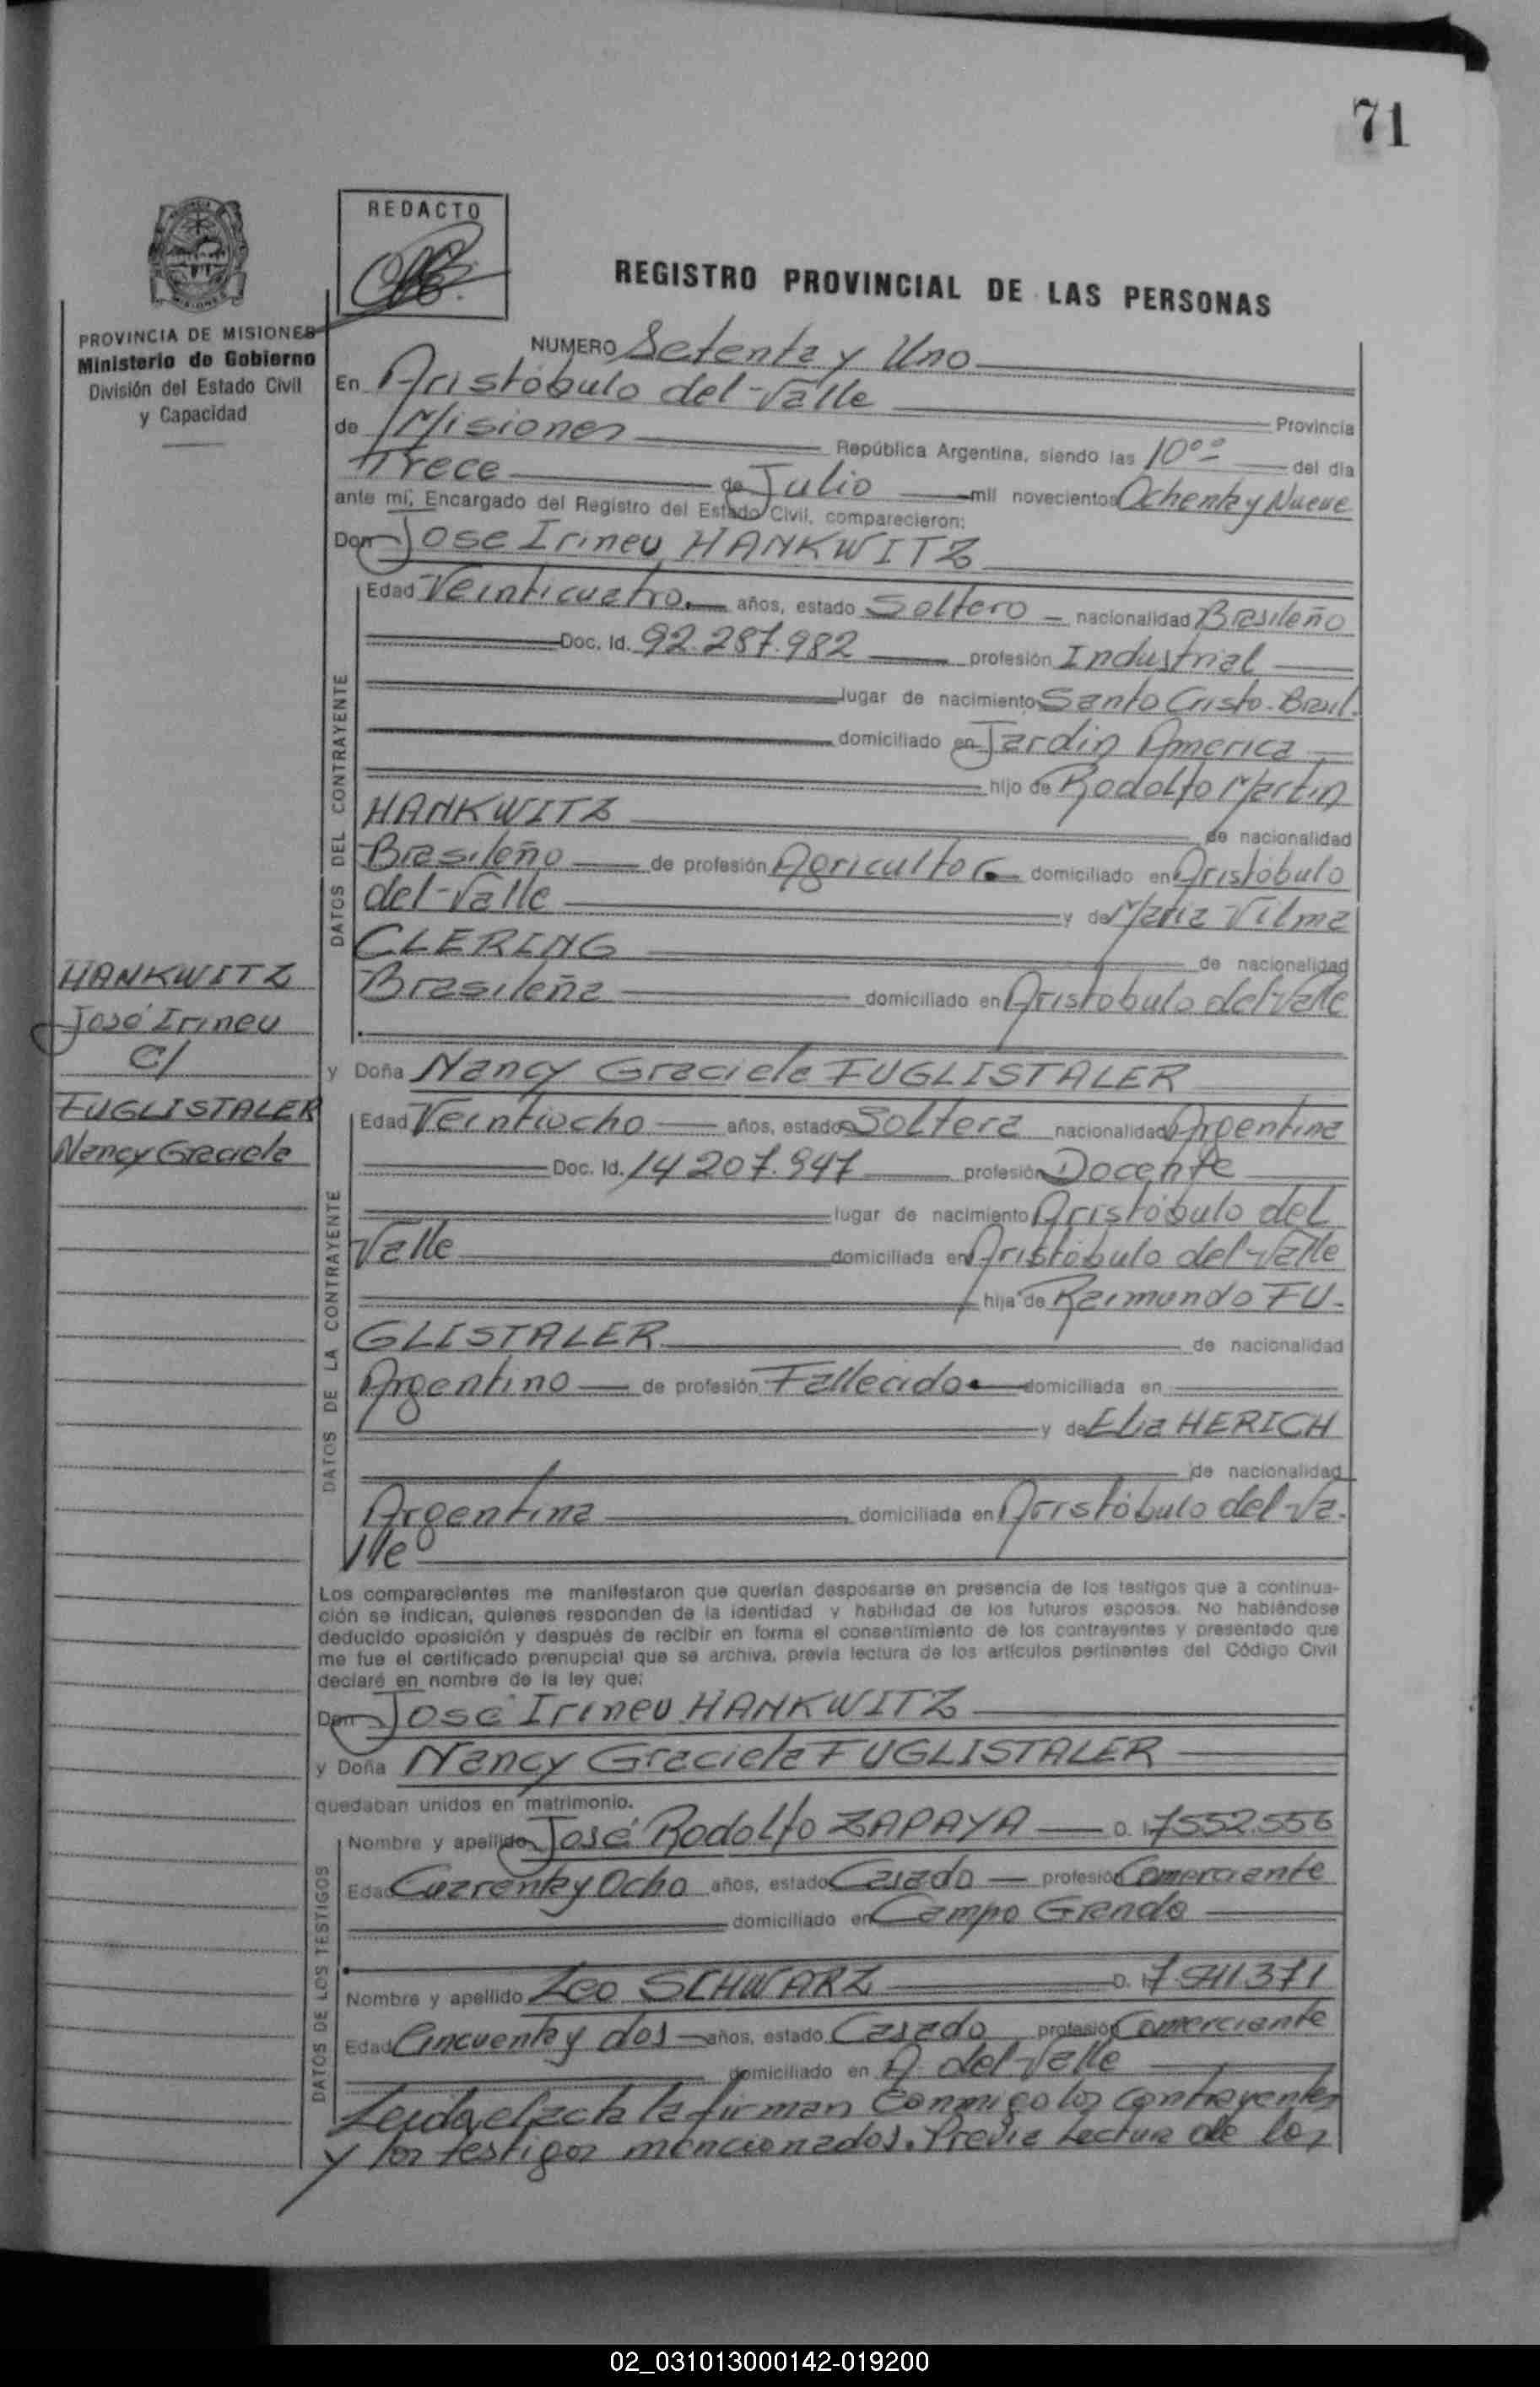 71
REDACTO
REGISTRO PROVINCIAL DE LAS PERSONAS
PROVINCIA DE MISIONES
Ministerio de Gobierno
División del Estado Civil
y Capacidad
NUMERO Setenta y Uno
En Aristóbulo del Valle Provincia
de Misiones República Argentina, siendo las 10⁰⁰ del día
trece de Julio mil novecientos Ochenta y Nueve
ante mí, Encargado del Registro del Estado Civil, comparecieron:
Don Jose Irineu HANKWITZ
DATOS DEL CONTRAYENTE
Edad Veinticuatro años, estado Soltero nacionalidad Brasileño
Doc. Id. 92.287.982 profesión Industrial
lugar de nacimiento Santo Cristo-Brasil.
domiciliado en Jardin America
hijo de Rodolfo Martin
HANKWITZ de nacionalidad
Brasileño de profesión Agricultor domiciliado en Aristóbulo
del Valle y de Maria Vilma
CLERING de nacionalidad
Brasileña domiciliado en Aristobulo del Valle
HANKWITZ
José Irineu
C/
FUGLISTALER
Nancy Graciela
y Doña Nancy Graciela FUGLISTALER
DATOS DE LA CONTRAYENTE
Edad Veintiocho años, estado Soltera nacionalidad Argentina
Doc. Id. 14 207.947 profesión Docente
lugar de nacimiento Aristóbulo del
Valle domiciliada en Aristóbulo del Valle
hija de Raimundo FU-
GLISTALER de nacionalidad
Argentino de profesión Fallecido domiciliada en
y de Elia HERICH
de nacionalidad
Argentina domiciliada en Aristóbulo del Va-
lle
Los comparecientes me manifestaron que querían desposarse en presencia de los testigos que a continua-
ción se indican, quienes responden de la identidad y habilidad de los futuros esposos. No habiéndose
deducido oposición y después de recibir en forma el consentimiento de los contrayentes y presentado que
me fue el certificado prenupcial que se archiva, previa lectura de los artículos pertinentes del Código Civil
declaré en nombre de la ley que:
Don José Irineu HANKWITZ
y Doña Nancy Graciela FUGLISTALER
quedaban unidos en matrimonio.
DATOS DE LOS TESTIGOS
Nombre y apellido José Rodolfo ZAPAYA D. I. 7552.556
Edad Cuarenta y Ocho años, estado Casado profesión Comerciante
domiciliado en Campo Grande
Nombre y apellido Leo SCHWARZ D. I. 7541371
Edad Cincuenta y dos años, estado Casado profesión Comerciante
domiciliado en A. del Valle
Leida el acta la firman conmigo los contrayentes
y los testigos mencionados. Previa Lectura de los
02_031013000142-019200